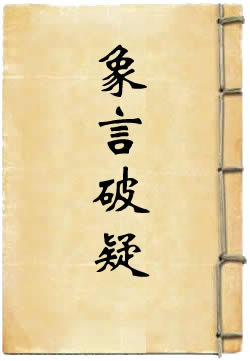 象言破疑